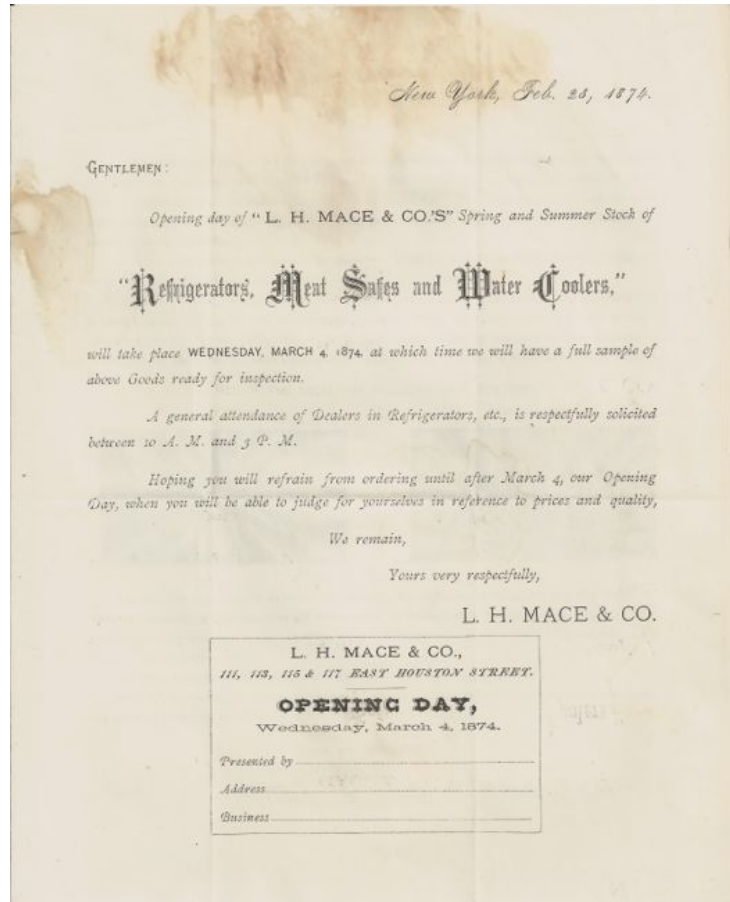 New York, Feb. 23, 1874.
GENTLEMEN:
Opening day of "L. H. MACE & CO.'S" Spring and Summer Stock of
"Refrigerators, Meat Safes and Water Coolers,"
will take place WEDNESDAY, MARCH 4, 1874, at which time we will have a full sample of
above Goods ready for inspection.
A general attendance of Dealers in Refrigerators, etc., is respectfully solicited
between 10 A. M. and 3 P. M.
Hoping you will refrain from ordering until after March 4, our Opening
Day, when you will be able to judge for yourselves in reference to prices and quality,
We remain,
Yours very respectfully,
L. H. MACE & CO.
L. H. MACE & CO.,
111, 113, 115 & 117 EAST HOUSTON STREET.
OPENING DAY,
Wednesday, March 4, 1874.
Presented by
Address
Business